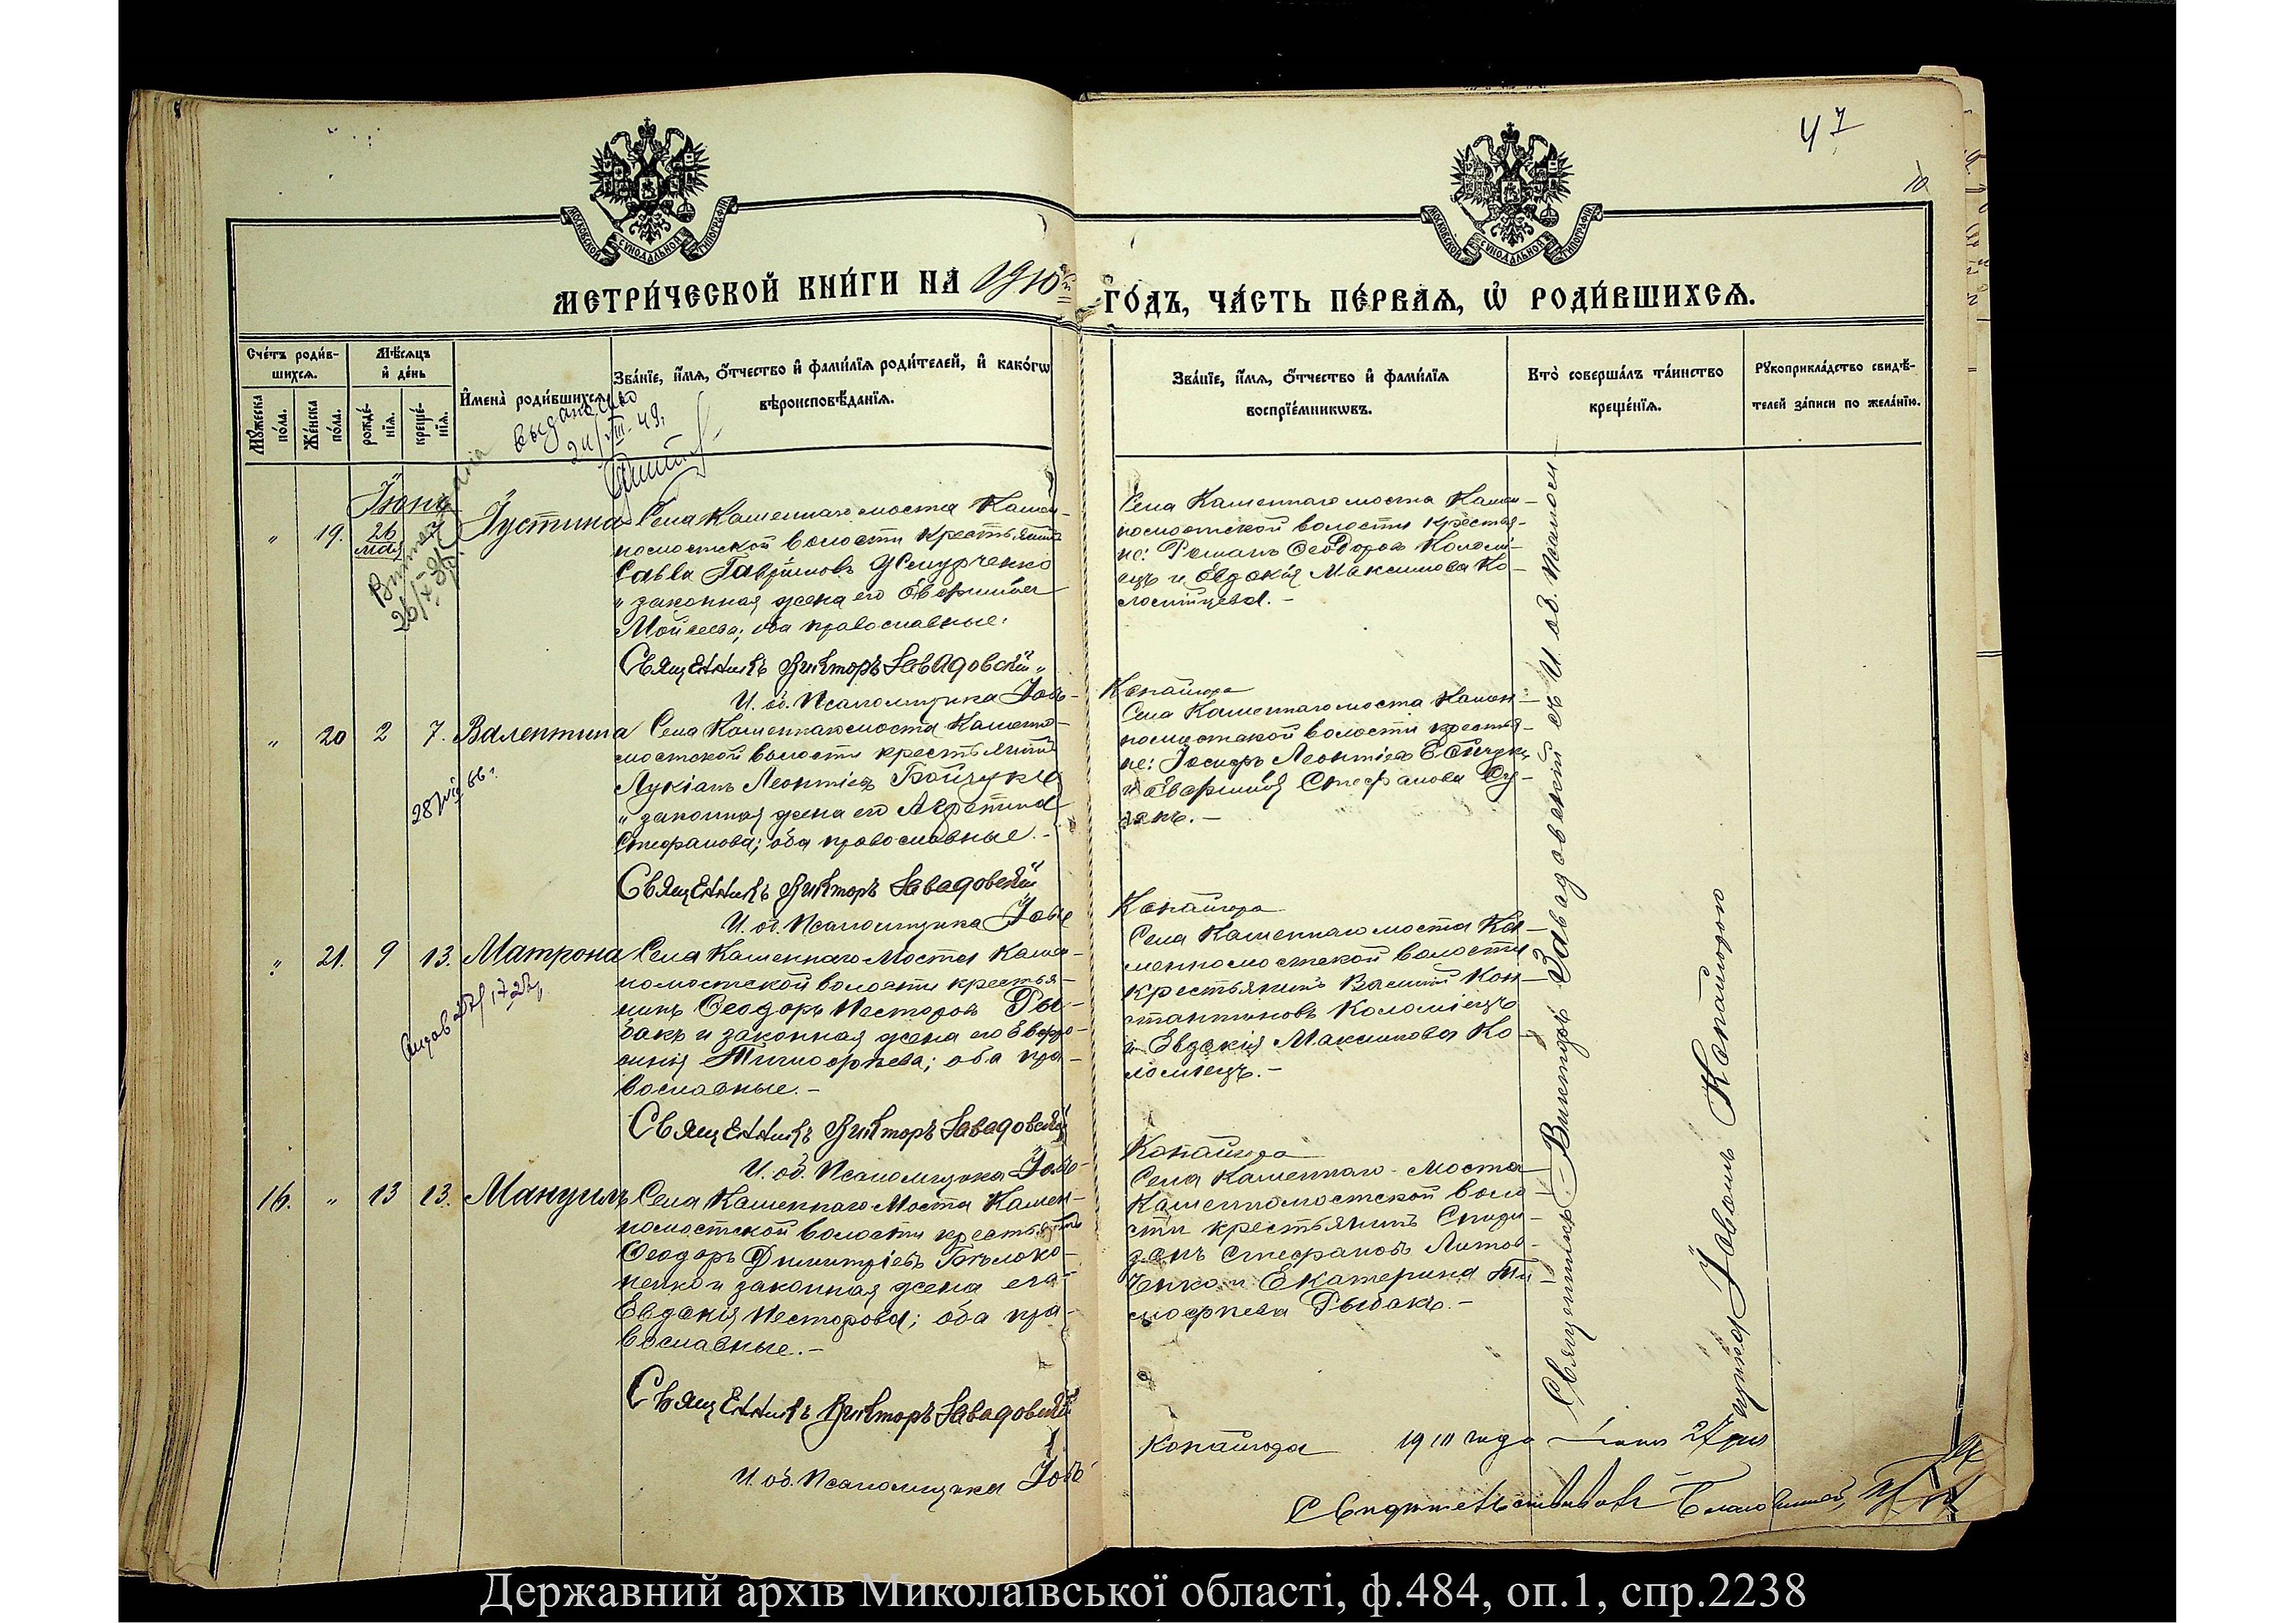 47
10
МОСКОВСКОЙ СѴНОДАЛЬНОЙ ТИПОГРАФІИ
МОСКОВСКОЙ СѴНОДАЛЬНОЙ ТИПОГРАФІИ
МЕТРИ́ЧЕСКОЙ КНИ́ГИ НА 1910й
ГО́ДЪ, ЧА́СТЬ ПЕ́РВАѦ, Ѡ҆ РОДИ́ВШИХСѦ.
Сче́тъ роди́в-
шихсѧ.
Мꙋ́жеска по́ла.
Же́нска по́ла.
Мѣ́сѧцъ
и҆ де́нь
рожде́-
нїѧ.
креще́-
нїѧ.
И҆мена̀ роди́вшихсѧ.
Зва́нїе, и҆́мѧ, ѻ҆́тчество и҆ фами́лїѧ роди́телей, и҆ како́гѡ
вѣроисповѣ́данїѧ.
Зва́нїе, и҆́мѧ, ѻ҆́тчество и҆ фами́лїѧ
воспрїе́мникѡвъ.
Кто̀ соверша́лъ та́инство
креще́нїѧ.
Рꙋкоприкла́дство свидѣ́-
телей за́писи по жела́нїю.
49.
Іюнь
" 19. 26 мая 7 Іустина
Села Каменнаго моста Камен-
номостской волости крестьянинъ
Савва Гавріиловъ
и законная жена его
Мойсеева; оба православные.
Священникъ Викторъ Завадовскій
И. об. Псаломщика Іовъ
Села Каменнаго моста Камен-
номостской волости крестья-
не: Романъ Ѳеодоровъ Коломі-
ецъ и Евдокія Максимова Ко-
ломійцева.-
Копайгора
" 20 2 7. Валентина
Села Каменнаго моста Каменно-
мостской волости крестьянинъ
Лукіанъ Леонтіевъ Бойчукъ
и законная жена его Агрипина
Стефанова; оба православные.-
28/VII 66 г.
Священникъ Викторъ Завадовскій
И. об. Псаломщика Іовъ
Села Каменнаго моста Камен-
номостской волости крестья-
не: Іосифъ Леонтіевъ Бойчукъ
и Стефанова
Копайгора
" 21. 9 13. Матрона
Села Каменнаго Моста Камен-
номостской волости крестья-
нинъ Ѳеодоръ Несторовъ Ры-
бакъ и законная жена его Евфро-
синія Тимоѳеева; оба пра-
вославные.-
Священникъ Викторъ Завадовскій
И. об. Псаломщика Іовъ
Села Каменнаго моста Ка-
менномостской волости
крестьянинъ Василій Кон-
стантиновъ Коломіецъ
и Евдокія Максимова Ко-
ломіецъ.-
Копайгора
16. " 13 13. Мануилъ
Села Каменнаго Моста Камен-
номостской волости крестьянинъ
Ѳеодоръ Димитріевъ Бѣлоко-
ненко и законная жена его
Евдокія Несторова; оба пра-
вославные.-
Священникъ Викторъ Завадовскій
И. об. Псаломщика Іовъ
Села Каменнаго Моста
Каменномостской воло-
сти крестьянинъ Спири-
донъ Стефановъ Литов-
ченко и Екатерина Ти-
моѳеева Рыбакъ.-
Копайгора
Священникъ Викторъ Завадовскій съ И. об. Псалом-
щика Іовомъ Копайгорою
1910 года 27 дня
Свидѣтельствовалъ Благочинный,
Державний архів Миколаївської області, ф.484, оп.1, спр.2238